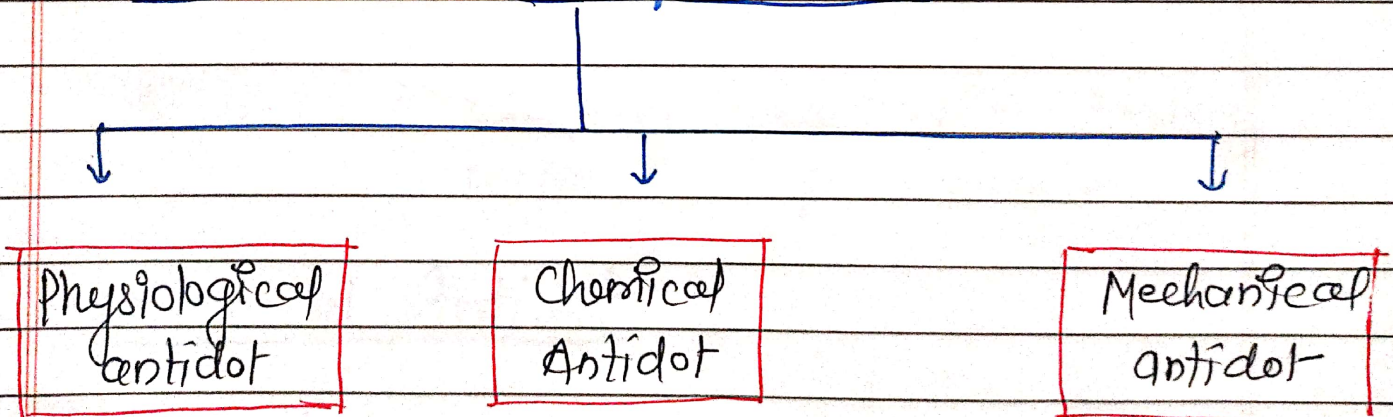 Physiological
antidot
Chemical
Antidot
Mechanical
antidot